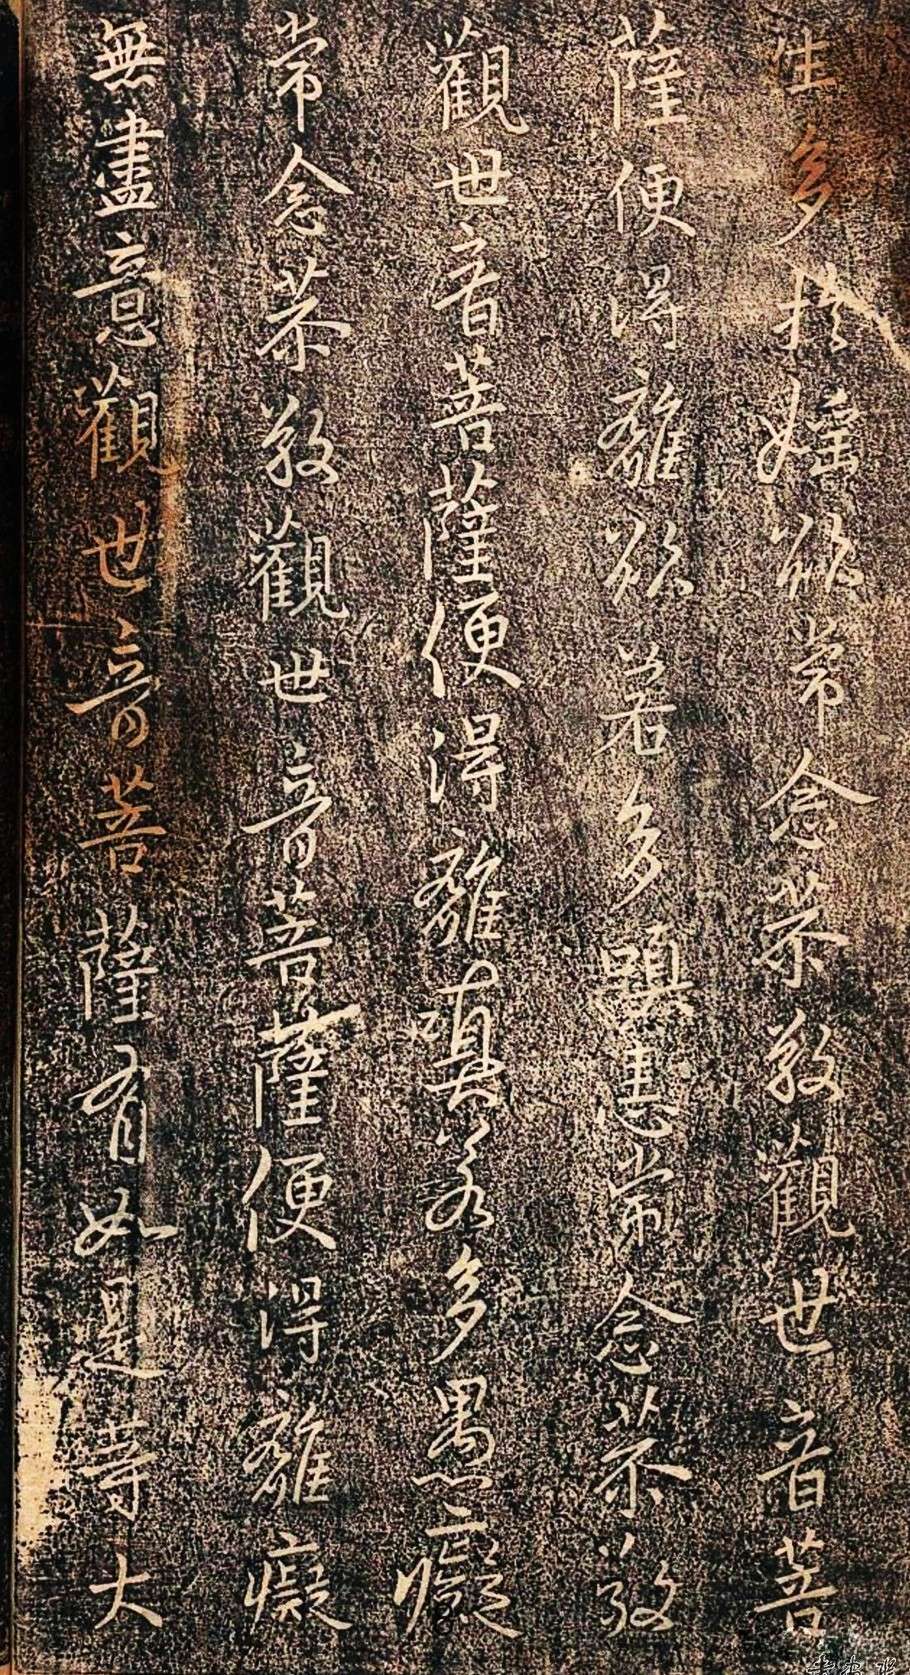 生多於婬欲常念恭敬觀世音菩
薩便得離欲若多瞋恚常念恭敬
觀世音菩薩便得離瞋若多愚癡
常念恭敬觀世音菩薩便得離癡
無盡意觀世音菩薩有如是等大